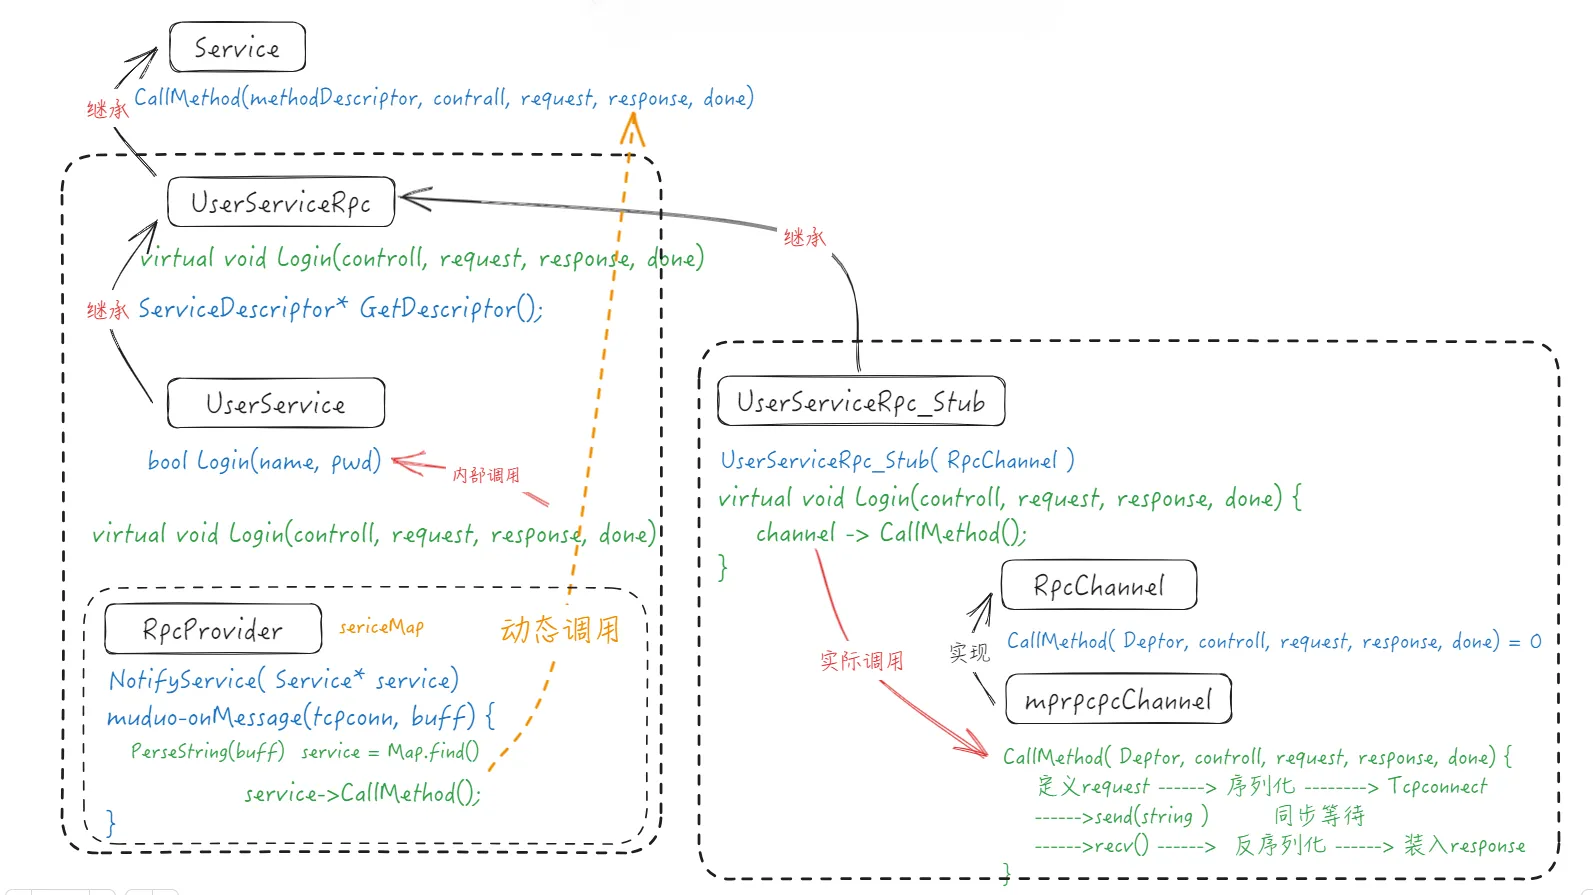 Service
CallMethod(methodDescriptor, contrall, request, response, done)
继承
UserServiceRpc
virtual void Login(controll, request, response, done)
继承
ServiceDescriptor* GetDescriptor();
UserService
bool Login(name, pwd)
内部调用
virtual void Login(controll, request, response, done)
RpcProvider
sericeMap
动态调用
NotifyService( Service* service)
muduo-onMessage(tcpconn, buff) {
PerseString(buff) service = Map.find()
service->CallMethod();
}
继承
UserServiceRpc_Stub
UserServiceRpc_Stub( RpcChannel )
virtual void Login(controll, request, response, done) {
channel -> CallMethod();
}
RpcChannel
CallMethod( Deptor, controll, request, response, done) = 0
实现
实际调用
mprpcpcChannel
CallMethod( Deptor, controll, request, response, done) {
定义request ------> 序列化 --------> Tcpconnect
------>send(string ) 同步等待
------>recv() ------> 反序列化 ------> 装入response
}